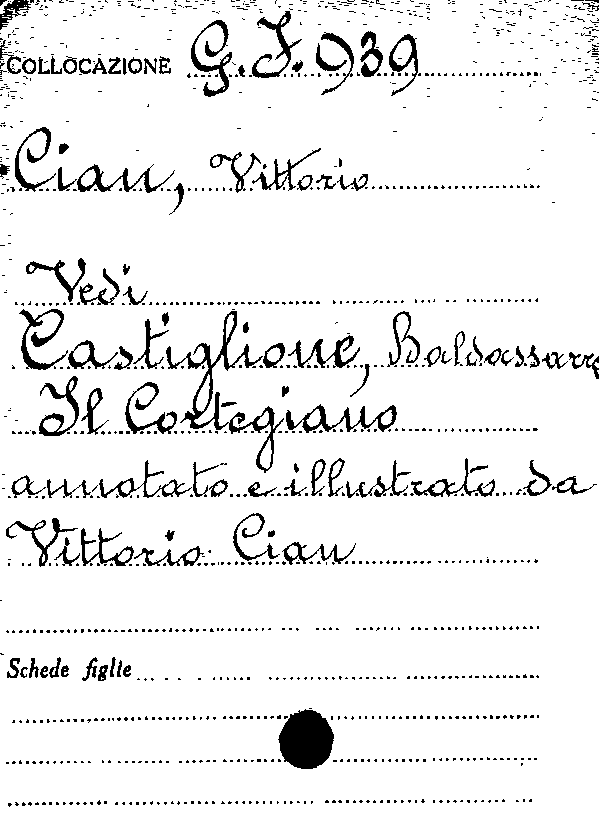 COLLOCAZIONE G.F.939
Cian, Vittorio
Vedi
Castiglione, Baldassarre
Il Cortegiano
annotato e illustrato da
Vittorio Cian
Schede figlie